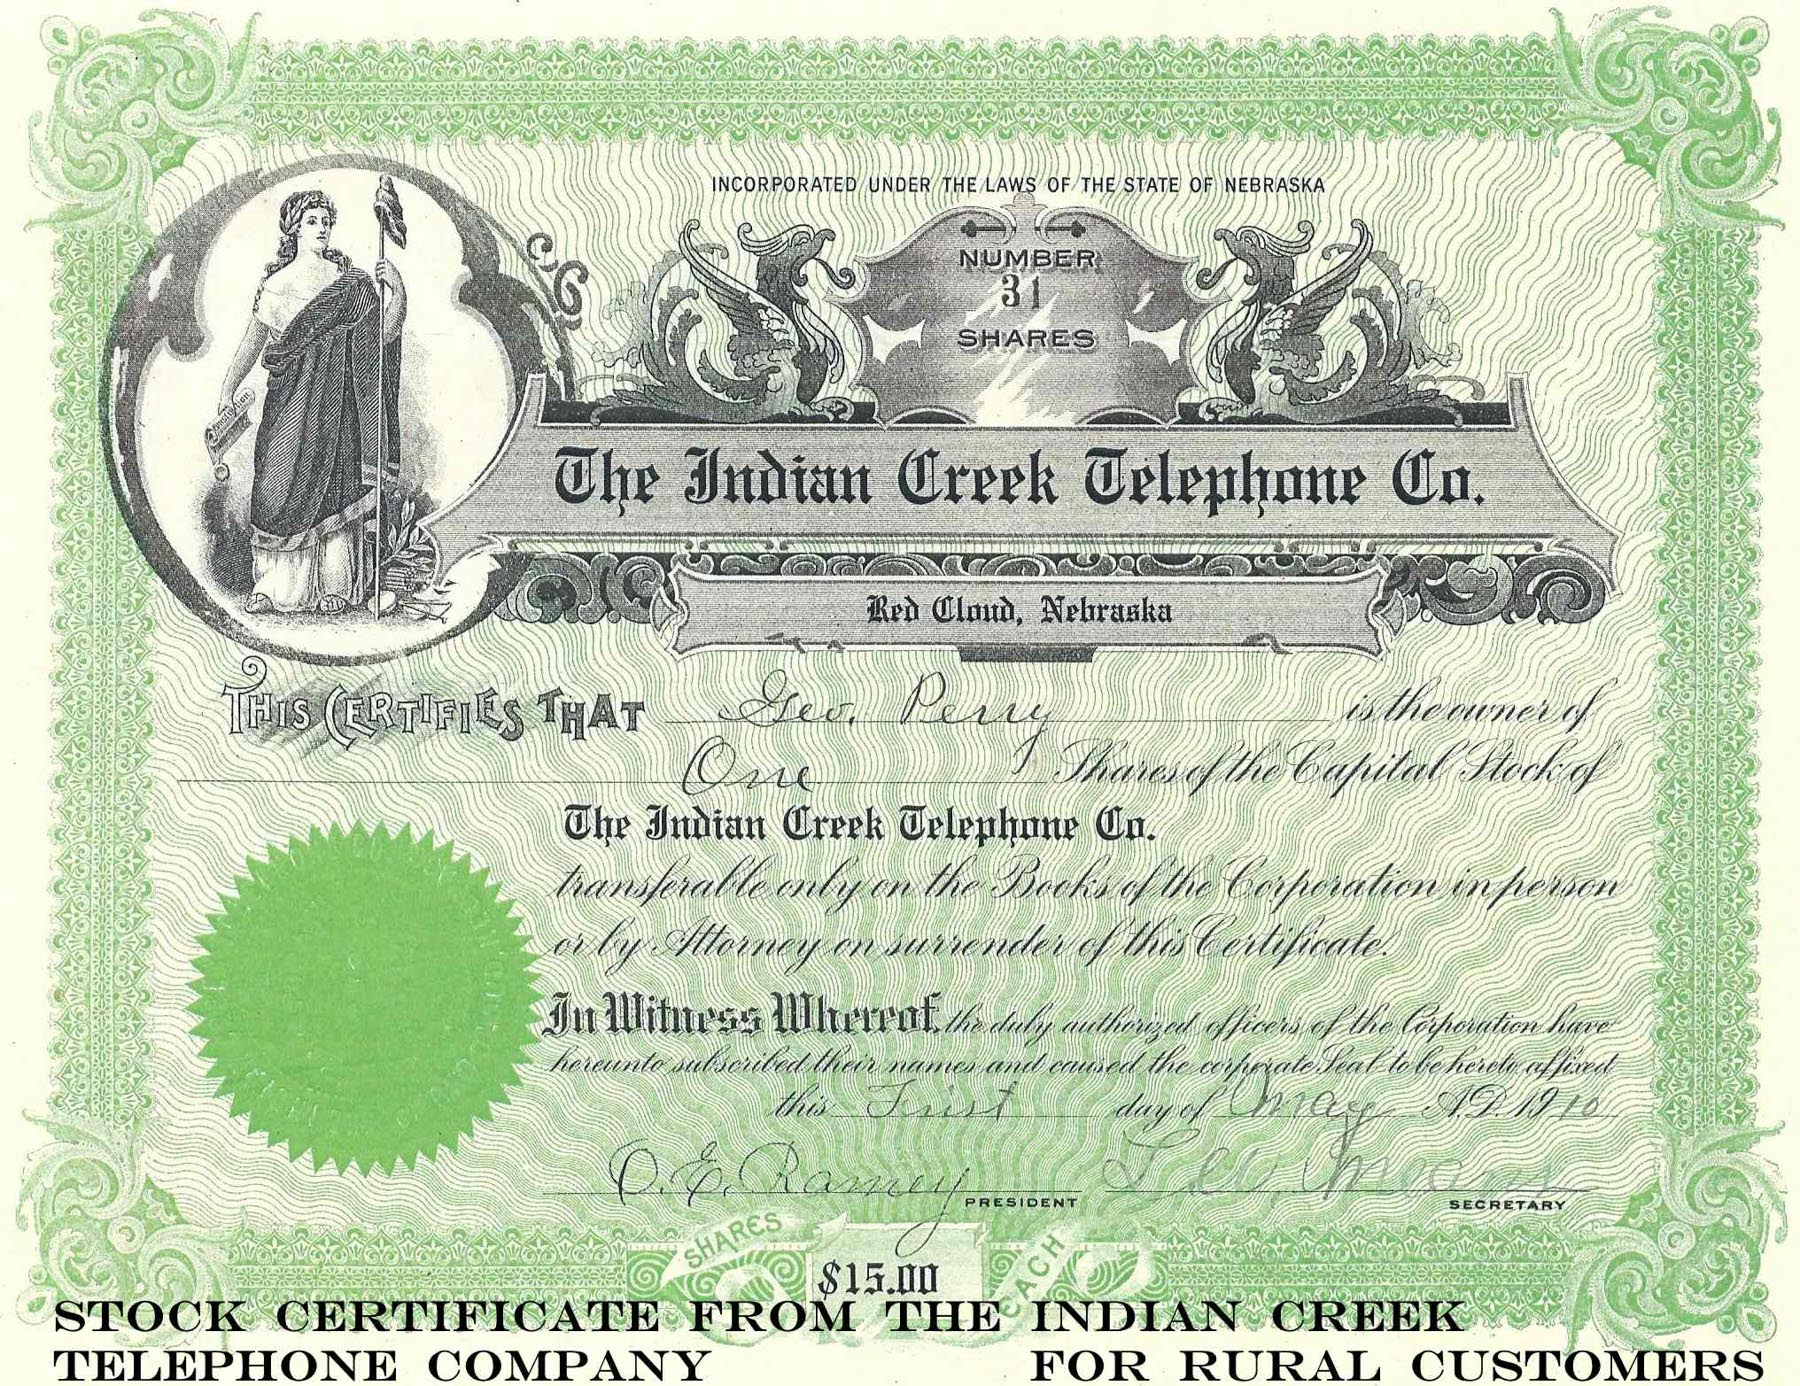 INCORPORATED UNDER THE LAWS OF THE STATE OF NEBRASKA
NUMBER
31
SHARES
Constitution
The Indian Creek Telephone Co.
Red Cloud, Nebraska
THIS CERTIFIES THAT Geo. Perry is the owner of
One Shares of the Capital Stock of
The Indian Creek Telephone Co.
transferable only on the Books of the Corporation in person
or by Attorney on surrender of this Certificate.
In Witness Whereof, the duly authorized officers of the Corporation have
hereunto subscribed their names and caused the corporate Seal to be hereto affixed
this First day of May A.D. 1910
O. E. Ramey PRESIDENT Leo SECRETARY
SHARES $15.00 EACH
STOCK CERTIFICATE FROM THE INDIAN CREEK
TELEPHONE COMPANY FOR RURAL CUSTOMERS